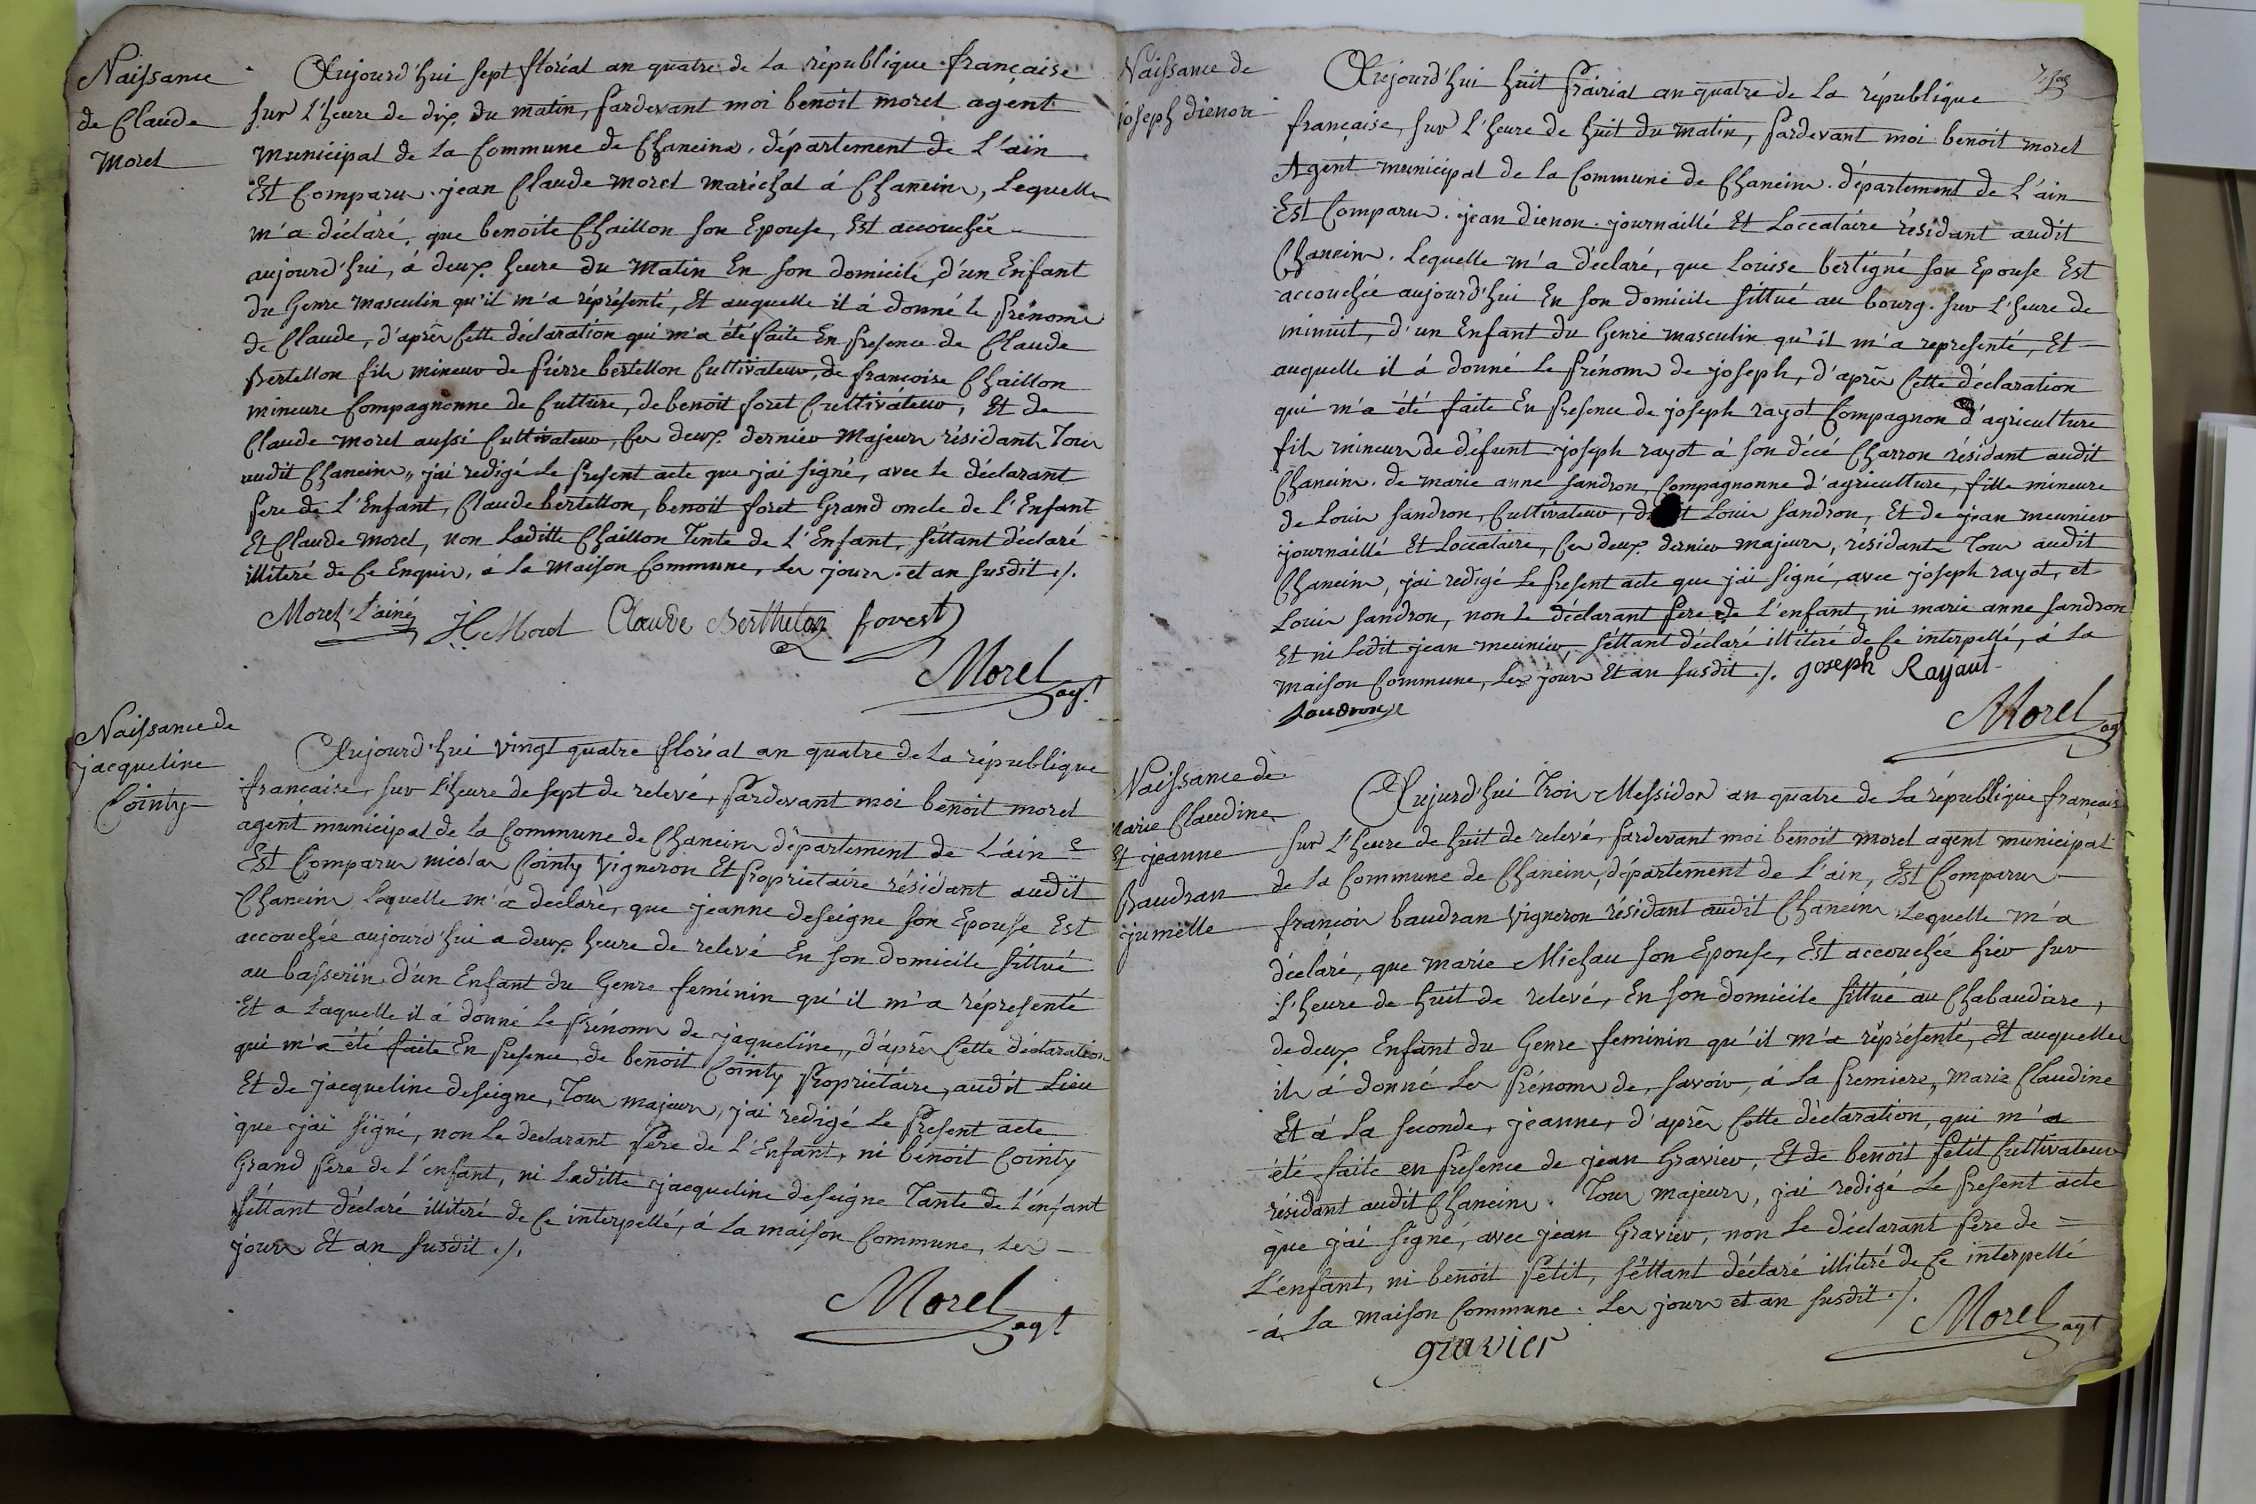 Naissance
de Claude
Morel
Aujourd'hui sept floréal an quatre de La république française
sur L'heure de dix du matin, pardevant moi benoit morel agent
municipal de La Commune de Chaneins, département de L'ain
Est Comparu jean Claude morel maréchal á Chaneins, Lequelle
m'a déclaré, que benoite Chaillon son Epouse, Est accouchée
aujourd'hui, á deux heure du matin En son domicile, d'un Enfant
du Genre masculin qu'il m'a réprésenté, Et auquelle il á donné le prénom
de Claude, d'après Cette déclaration qui m'a été faite En presence de Claude
Bertellon fils mineur de piérre bertellon Cultivateur, de francoise Chaillon
mineure Compagnonne de Culture, de benoit foret Cultivateur, Et de
Claude morel aussi Cultivateur, Ces deux dernier Majeurs résidants Tous
audit Chaneins, j'ai redigé Le present acte que j'ai signé, avec Le déclarant
pere de L'Enfant, Claude bertellon, benoit foret Grand oncle de L'Enfant
Et Claude Morel, non Laditte Chaillon Tente de L'Enfant, séttant déclaré
illiteré de Ce Enquis, á La Maison Commune, Les jours et an susdit ./.
Morel L'ainé Morel Claude Berthelon forest
Morel agt
Naissance de
jacqueline
Cointy
Aujourd'hui vingt quatre floréal an quatre de La république
francaise, sur L'heure de sept de relevé, pardevant moi benoit morel
agent municipal de La Commune de Chaneins département de L'ain
Est Comparu nicolas Cointy Vigneron Et proprietaire résidant audit
Chaneins Lequelle m'á declaré, que jeanne deseigne son Epouse Est
accouchée aujourd'hui a deux heure de relevé En son domicile sittué
au basserin d'un Enfant du Genre feminin qu'il m'a réprésenté
Et a Laquelle il á donné Le prénom de jaqueline, d'après Cette déclaration
qui m'a été faite En presence, de benoit Cointy propriétaire, audit Lieu
Et de jacqueline deseigne, Tous majeurs, j'ai redigé Le present acte
que j'ai signé, non Le declarant pere de L'Enfant, ni bénoit Cointy
Grand pere de L'enfant, ni Laditte jacqueline deseigne Tante de L'énfant
séttant déclaré illiteré de Ce interpellé, á La maison Commune, Les
jours Et an susdit ./.
Morel agt
Naissance de
joseph dienon
Aujourd'hui huit prairial an quatre de La république
française, sur L'heure de huit du matin, pardevant moi benoit morel
Agent municipal de La Commune de Chaneins département de L'ain
Est Comparu jean dienon journaillé Et Loccataire résidant audit
Chaneins. Lequelle m'a déclaré, que Louise bertigné son Epouse Est
accouchée aujourd'hui En son domicile sittué au bourg. sur L'heure de
minuit, d'un Enfant du Genre masculin qu'il m'a representé, Et
auquelle il á donné Le prénom de joseph, d'après Cette déclaration
qui m'a été faite En presence de joseph rayot Compagnon d'agriculture
fils mineur de défunt joseph rayot á son décé Charron résidant audit
Chaneins. de marie anne sandron, Compagnonne d'agriculture, fille mineure
de Louis sandron, Cultivateur, Louis sandron, Et de jean meunier
journaillé Et Loccataire, Ces deux dernier majeurs, résidants Tous audit
Chaneins, j'ai redigé Le present acte que j'ai signé, avec joseph rayot, et
Louis sandron, non Le déclarant pere de L'enfant, ni marie anne sandron
Et ni Ledit jean meunier, séttant déclaré illiteré de Ce interpellé, á La
maison Commune, Les jours Et an susdit ./. joseph Rayaut
sandron
Morel agt
Naissance de
marie Claudine
Et jeanne
Baudran
jumelle
Aujourd'hui Trois Messidor an quatre de La république français
sur L'heure de huit de relevé, pardevant moi benoit morel agent municipal
de La Commune de Chaneins, département de L'ain, Est Comparu
françois baudran vigneron résidant audit Chaneins Lequelle m'a
déclaré, que marie Michau son Epouse, Est accouchée hier sur
L'heure de huit de relevé, En son domicile sittué au Chabaudiere,
de deux Enfant du Genre feminin qu'il m'a réprésenté, Et auquelles
ils á donné Les prénoms de, savoir, á La premiere, marie Claudine
Et á La seconde, jeanne, d'après Cette déclaration, qui m'a
été faite en presence de jean Gravier, Et de benoit petit Cultivateur
résidant audit Chaneins. Tous majeurs, j'ai redigé Le present acte
que j'ai signé, avec jean Gravier, non Le déclarant pere de
L'enfant, ni benoit petit, séttant déclaré illiteré de Ce interpellé
á La maison Commune. Les jours et an susdit ./.
Morel agt
gravier